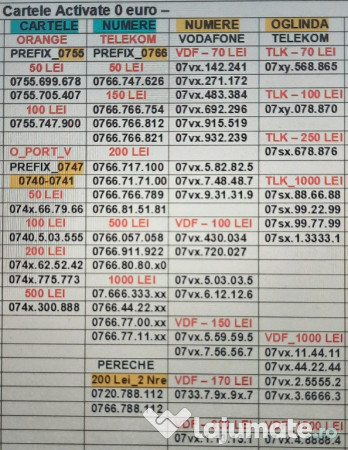 Cartele Activate 0 euro –
CARTELE NUMERE NUMERE OGLINDA
ORANGE TELEKOM VODAFONE TELEKOM
PREFIX_0755 PREFIX_0766 VDF – 70 LEI TLK – 70 LEI
50 LEI 50 LEI 07vx.142.241 07xy.568.865
0755.699.678 0766.747.626 07vx.271.172
0755.705.407 150 LEI 07vx.483.384 TLK – 100 LEI
100 LEI 0766.766.754 07vx.692.296 07xy.078.870
0755.747.900 0766.766.812 07vx.915.519
0766.766.821 07vx.932.239 TLK – 250 LEI
O_PORT_V 200 LEI 07sx.678.876
PREFIX_0747 0766.717.100 07vx.5.82.82.5
0740-0741 0766.71.71.00 07vx.7.48.48.7 TLK_1000 LEI
50 LEI 0766.766.789 07vx.9.31.31.9 07sx.88.66.88
074x.66.79.66 0766.81.51.81 07sx.99.22.99
100 LEI 500 LEI VDF – 100 LEI 07sx.99.77.99
0740.5.03.555 0766.057.058 07vx.430.034 07sx.1.3333.1
200 LEI 0766.911.922 07vx.720.027
074x.62.52.42 0766.80.80.x0
074x.775.773 1000 LEI 07vx.5.03.03.5
500 LEI 07.666.333.xx 07vx.6.12.12.6
074x.300.888 0766.44.22.xx
0766.77.00.xx VDF – 150 LEI
0766.77.11.xx 07vx.5.59.59.5 VDF_1000 LEI
07vx.7.56.56.7 07vx.11.44.11
PERECHE 07vx.44.22.44
200 Lei_2 Nre VDF – 170 LEI 07vx.2.5555.2
0720.788.112 0733.7.9x.9x.7 07vx.3.6666.3
0766.788.112
Lajumate.ro